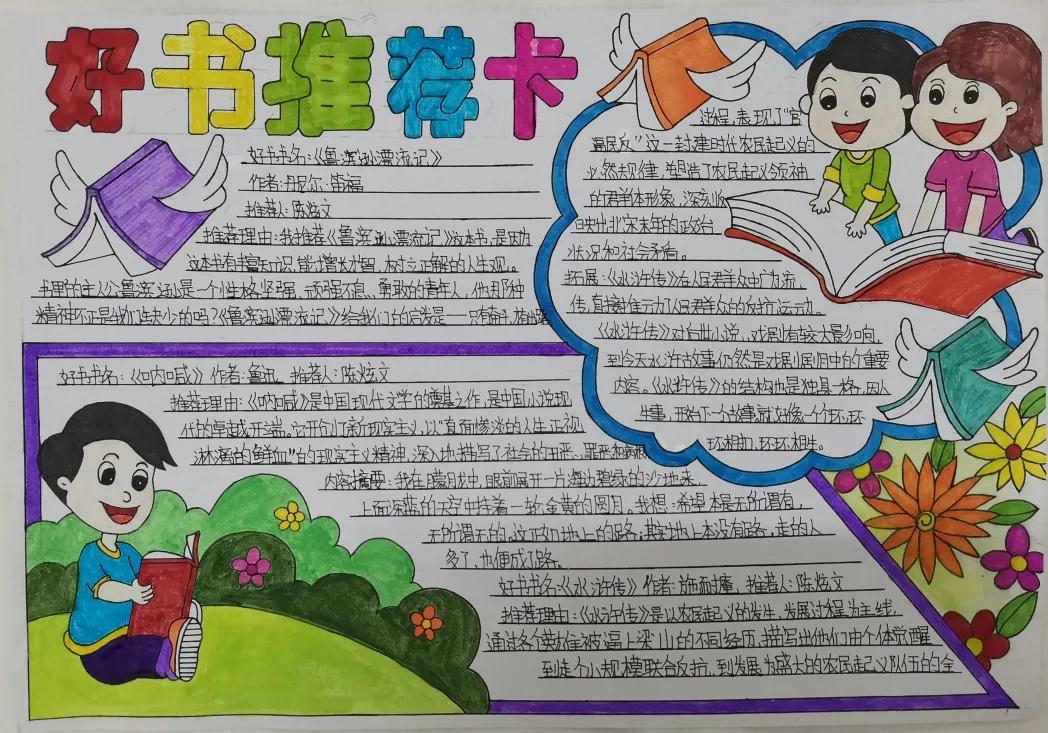 好书推荐卡
好书书名:《鲁滨逊漂流记》
作者:丹尼尔·笛福
推荐人:陈炫文
推荐理由:我推荐《鲁滨逊漂流记》这本书,是因为
这本书有丰富知识,能增长才智,树立正解的人生观。
书里的主人公鲁滨逊是一个性格坚强、顽强不息、勇敢的青年人,他那种
精神不正是我们缺少的吗?《鲁滨逊漂流记》给我们的启发是一只有奋斗,
好书书名:《呐喊》 作者:鲁迅 推荐人:陈炫文
推荐理由:《呐喊》是中国现代文学的奠基之作,是中国小说现
代的卓越开端。它开创了新现实主义,以"直面惨淡的人生,正视
淋漓的鲜血"的现实主义精神,深入地描写了社会的丑恶、罪恶和病根
内容摘要:我在朦胧中,眼前展开一片海边碧绿的沙地来,
上面深蓝的天空中挂着一轮金黄的圆月。我想:希望本是无所谓有,
无所谓无的。这正如地上的路;其实地上本没有路,走的人
多了,也便成了路。
好书书名:《水浒传》 作者:施耐庵, 推荐人:陈炫文
推荐理由:《水浒传》是以农民起义的发生、发展过程为主线,
通过各个英雄被逼上梁山的不同经历,描写出他们由个体觉醒
到走个小规模联合反抗,到发展为盛大的农民起义队伍的全
过程,表现了"官
逼民反"这一封建时代农民起义的
必然规律,塑造了农民起义领袖
的群体形象,深刻
映出北宋末年的政治
状况和社会矛盾。
拓展:《水浒传》在人民群众中广为流
传,直接推动人民群众的的反抗运动。
《水浒传》对后世小说、戏剧有较大影响,
到今天水浒故事仍然是戏剧剧目中的重要
内容。《水浒传》的结构也是独具一格,因人
生事,开始下一个故事,就好像一个环,环
环相扣,环环相生。